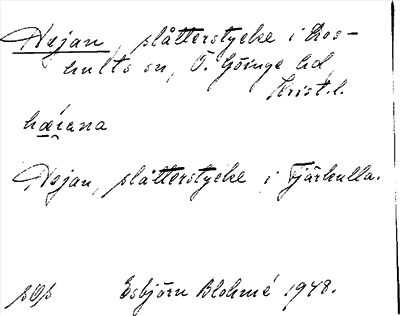 Hejan, slåtterstycke i Ros-
hults sn, Ö. Göinge hd,
Krist.l.
hæi̯ana
Hejan, slåtterstycke i Tjärkulla.
Esbjörn Blohmé 1948.